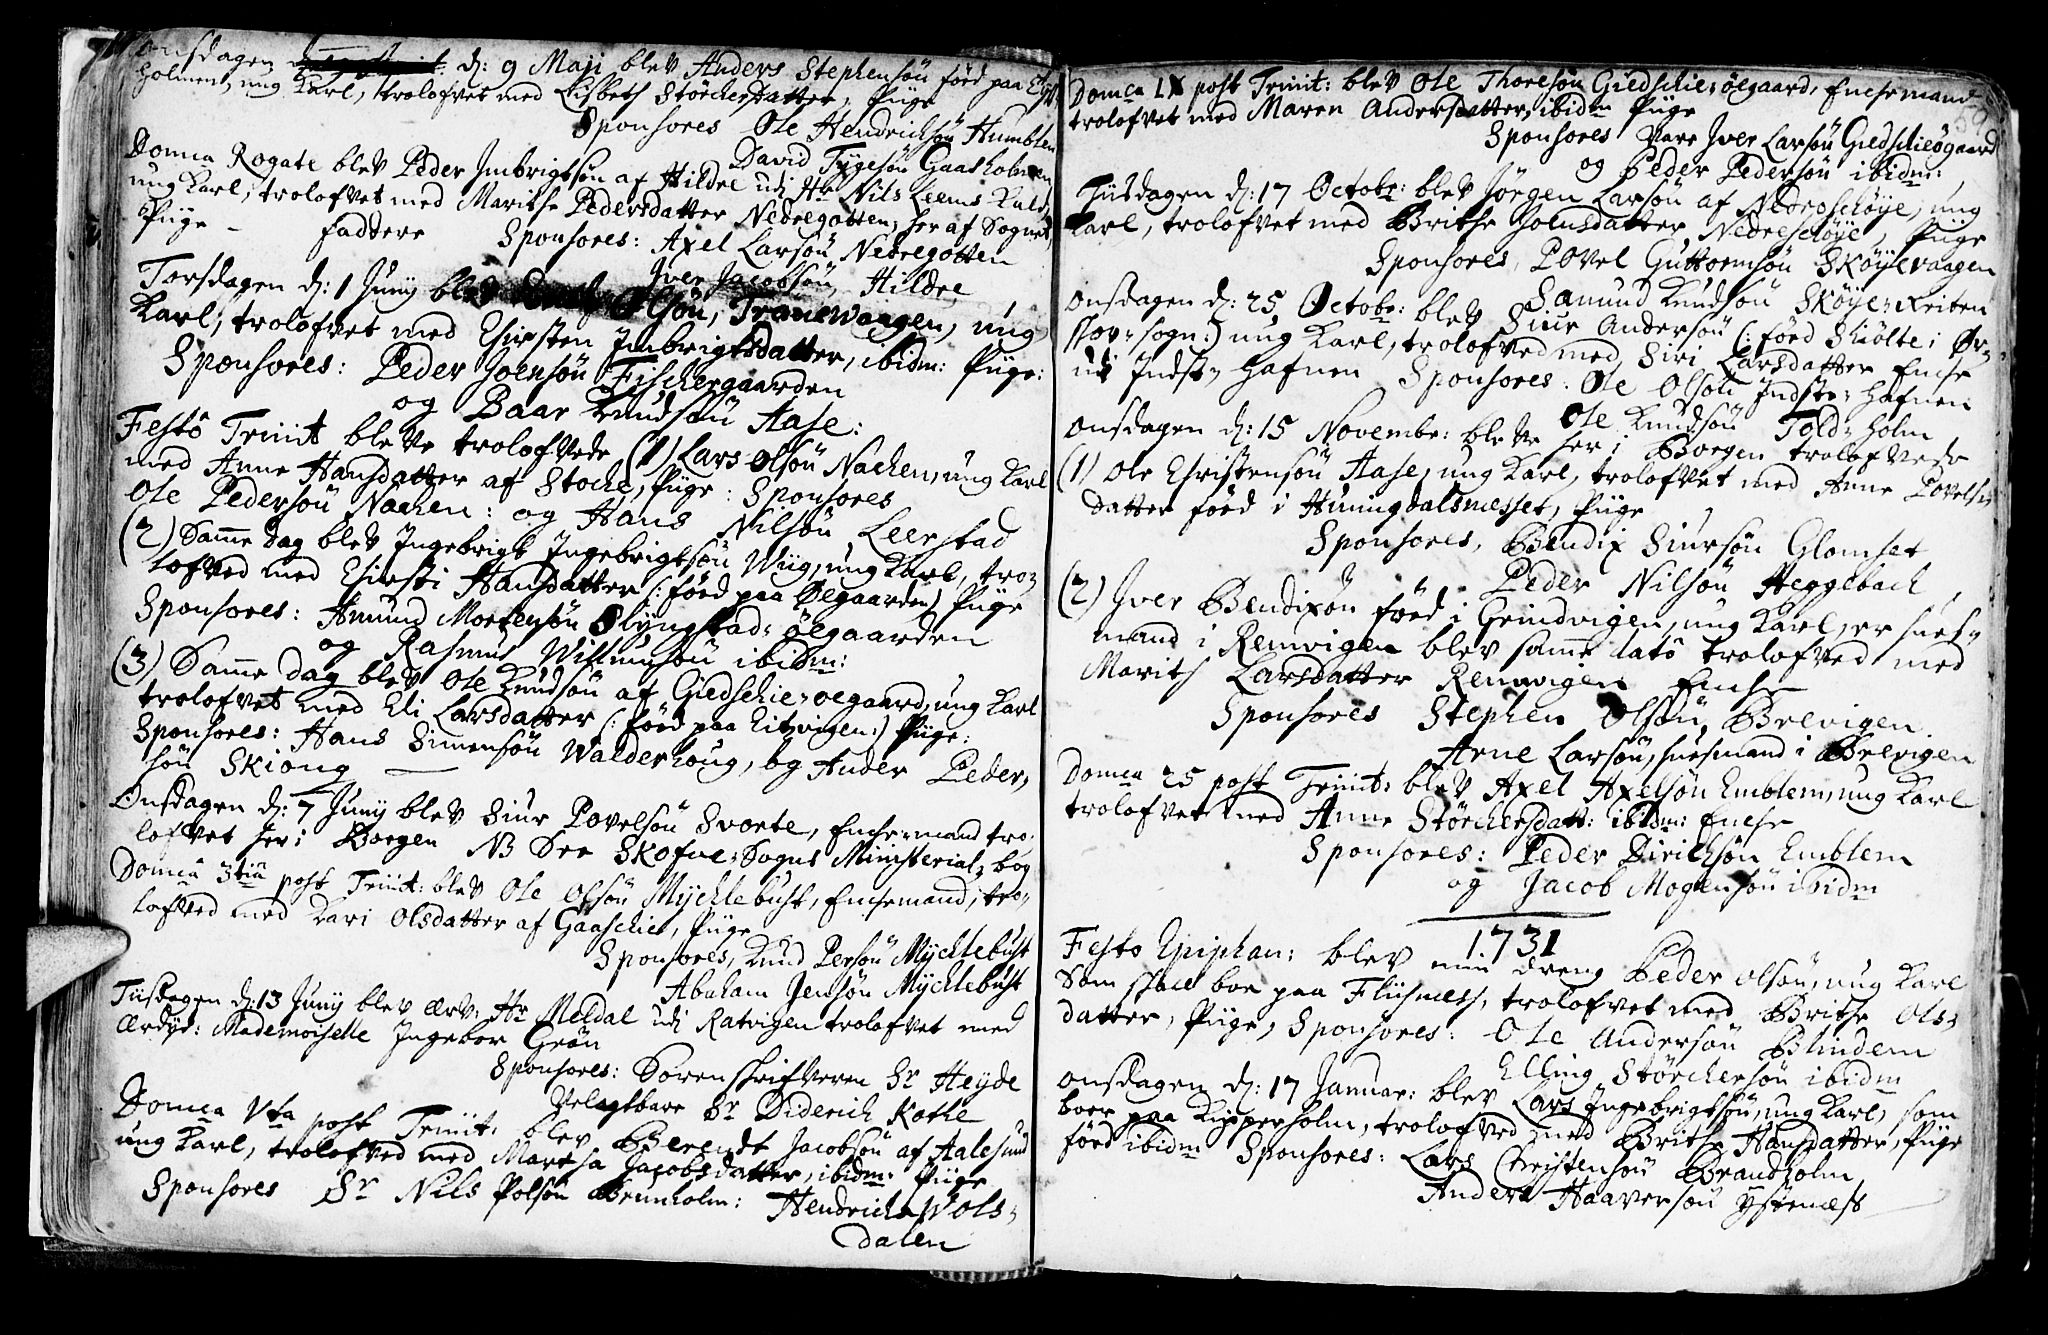 Onsdagen d: 9 Maji blev Anders Stephensøn föed paa
Holmen, ung Karl, trolofvet med Lisbeth Störchersdatter, Piige
Sponsores Ole Hendrichsøn Humblen
David Tygesøn Gaasholmen
Domca Rogate blev Peder Imbrigtsøn af Hildre udi Hr Nils Leems Kald,
ung Karl, trolofvet med Marithe Pedersdatter Nedregotten, her af Sognet,
Piige - Faddere Sponsores: Axel Larsøn Nedregotten
Iver Jacobsøn Hildre
Torsdagen d: 1 Junij blev Olsøn, Tranewaagen, ung
Karl, trolofvet med Chirsten Imbrigtsdatter, ibidm: Piige:
Sponsores: Peder Joensøn Fischergaarden
og Baar Knudsøn Aase:
Festo Trinit bleve trolofvede (1) Lars Olsøn Nachen, ung Karl
med Anne Hansdatter af Stoche, Piige: Sponsores
Ole Pedersøn Nachen: og Hans Nilsøn Leerstad
(2) Samme dag blev Ingebrigt Ingebrigtsøn Wiig, ung Karl, tro-
lofved med Chirsti Hansdatter (: föed paa Oegaarden) Piige
Sponsores: Amund Mortensøn Slyngstad-öegaarden
og Rasmus Willumsøn ibidm:
(3) Samme dag blev Ole Knudsøn af Giedschie-oegaard, ung Karl
trolofvet med Eli Larsdatter (: föed paa Eitzvigen:) Piige:
Sponsores: Hans Simensøn Walderhoug, og Ander Peder-
søn Skiong
Onsdagen d: 7 Junij blev Siur Povelsøn Svorte, Enchemand tro-
lofvet her i Borgen NB See Skofve-Sogns Ministerial-bog
Domca 3tia post Trinit: blev Ole Olsøn Mychlebust, Enchemand, tro-
lofved med Kari Olsdatter af Gaaschie, Piige
Sponsores, Knud Persøn Mychlebust
Abraham Jensøn Mychlebust
Tiisdagen d: 13 Junij blev Ærv: Hr Meldal udi Ratvigen trolofvet med
Ærdyd: Mademoiselle Ingebor Grøn
Sponsores: Sorenskrifveren Sr Heyde
Velagtbare Sr Diderich Kothe
Domca Vta post Trinit: blev Berendt Jacobsøn af Aalesund
ung Karl, trolofved med Maresa Jacobsdatter, ibidm: Piige
Sponsores Sr Nils Polsøn Brunholm: Hendrich Wols-
dalen
Domca IX post Trinit: blev Ole Thoresøn Giedschie-öegaard, Enchemand
trolofvet med Maren Andersdatter, ibidm Piige
Sponsores vare Iver Larsøn Giedschieögaard
og Peder Pedersøn ibidm:
Tiisdagen d: 17 Octobr: blev Jörgen Larsøn af Nedreschöye, ung
Karl, trolofvet med Brithe Johnsdatter Nedreschöye, Piige
Sponsores, Povel Guttormsøn Sköyevaagen
Samund Knudsøn Sköye-Reiten
Onsdagen d: 25 Octobr: blev Siur Andersøn (: föed Skiolte i Ør-
skov-sogn:) ung Karl, trolofved med Siri Larsdatter Enche
udi Indste Hafnen Sponsores: Ole Olsøn Indste-Hafnen
Ole Knudsøn Told-holm
Onsdagen d: 15 Novembr: bleve her i Borgen trolofvede
(1) Ole Christensøn Aase, ung Karl, trolofvet med Anne Povels-
datter föed i Huningdalsnesset, Piige
Sponsores, Bendix Siursøn Glomset
Peder Nilsøn Heggebach
(2) Iver Bendixøn föed i Grindvigen, ung Karl, er huus-
mand i Remvigen blev samme dato trolofved med
Marith Larsdatter Remvigen Enche
Sponsores Stephen Olsøn Brevigen
Arne Larsøn, huusmand i Brevigen
Domca 25 post Trinit: blev Axel Axelsøn Emblem, ung Karl
trolofvet med Anne Störchersdatt: ibidm: Enche
Sponsores: Peder Dirichsøn Emblem
og Jacob Mogensøn ibidm
1731
Festo Epiphan: blev min dreng Peder Olsøn, ung Karl
Som skal boe paa Fliisness, trolofvet med Brithe Ols-
datter, Piige, Sponsores: Ole Andersøn Blindem
Elling Störchersøn ibidm
Onsdagen d: 17 Januar: blev Lars Ingebrigtsøn, ung Karl, som
boer paa Kipperholm, trolofved med Brithe Hansdatter, Piige
föed ibidm Sponsores: Lars Christensøn Brandholm
Anders Haaversøn Ystenæss